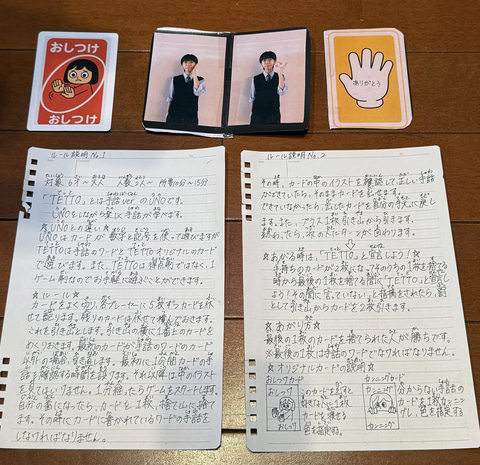 おしつけ
おしつけ
ありがとう
ルール説明 No.1
対象 6才～大人 人数 2人～ 所要10分～15分
「TETTO」とは手話ver.のUNOです。
UNOをしながら楽しく手話が学べます。
★UNOとの違い★
UNOはカードが数字と記号を使って遊びますが
TETTOは手話のワードとTETTOオリジナルのカード
で遊びます。また、TETTOは得点制ではなく、1
ゲーム制なのでお手軽に遊ぶことができます。
★ルール★
カードをよく切り、各プレーヤーに5枚ずつカードを伏
せて配ります。残りのカードは伏せて積んでおきます。
これを引き出しとします。引き出しの横に1番上のカードを
めくりおきます。最初のカードが手話のワードのカード
以外の場合、引き直します。最初に1分間カードの手
話を確認する時間を設けます。それ以降は中のイラスト
を見てはいけません。1分経ったらゲームをスタートします。
自分の番になったら、カードを1枚、捨て山に捨て
ます。その時にカードに書かれているワードの手話を
しなければなりません。
ルール説明 No.2
その時、カードの中のイラストを確認して正しい手話
ができていたら、そのままカードを出せます。
できていなかったら、出したカードを自分の手元に戻し
ます。また、プラス1枚引き出しから引きます。
終わったら、次の人にターンが変わります。
★あがる時は、「TETTO」と宣言しよう!★
手持ちのカードが2枚になってそのうちの1枚を捨てる
時から最後の1枚を捨てる間に「TETTO」と宣言し
よう!その間に「言っていない」と指摘をされたら、罰
として引き出しからカードを2枚引きます。
★あがり方★
最後の1枚のカードを捨てられた人が勝ちです。
※最後の1枚は手話のワードでなければなりません。
★オリジナルカードの説明★
おしつけカード
おしつけ
おしつけ
このカードを出すと
好きな人に1枚
カードを渡せる
色を指定する
カンニングカード
カンニング
カンニング
分からない手話の
カードを1枚カンニン
グし、色を指定する